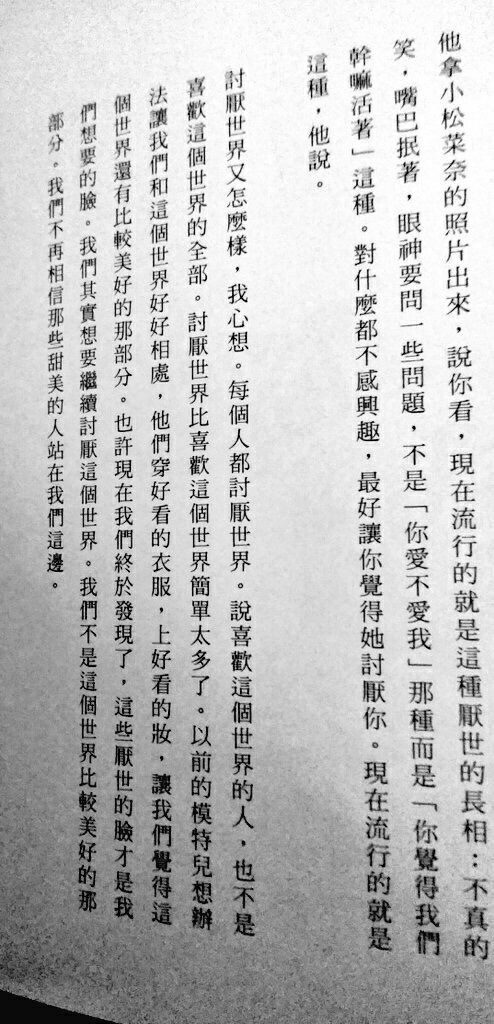 他拿小松菜奈的照片出來，說你看，現在流行的就是這種厭世的長相：不真的
笑，嘴巴抿著，眼神要問一些問題，不是「你愛不愛我」那種而是「你覺得我們
幹嘛活著」這種。對什麼都不感興趣，最好讓你覺得她討厭你。現在流行的就是
這種，他說。
討厭世界又怎麼樣，我心想。每個人都討厭世界。說喜歡這個世界的人，也不是
喜歡這個世界的全部。討厭世界比喜歡這個世界簡單太多了。以前的模特兒想辦
法讓我們和這個世界好好相處，他們穿好看的衣服，上好看的妝，讓我們覺得這
個世界還有比較美好的那部分。也許現在我們終於發現了，這些厭世的臉才是我
們想要的臉。我們其實想要繼續討厭這個世界。我們不是這個世界比較美好的那
部分。我們不再相信那些甜美的人站在我們這邊。